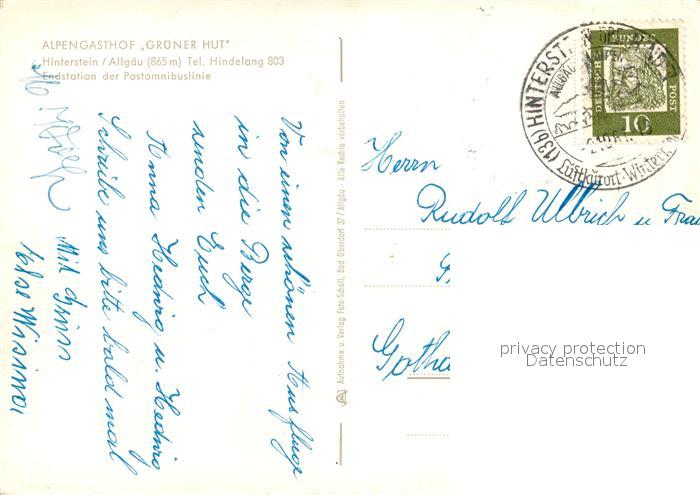 ALPENGASTHOF „GRÜNER HUT"
Hinterstein / Allgäu (865 m) Tel. Hindelang 803
Endstation der Postomnibuslinie
Von einen schönen Ausfluge
in die Berge
senden Euch
Anna Hedwig u. Hedwig
Schreibe uns bitte bald mal
Mit Gruss
Aufnahme u. Verlag Foto-Scholl, Bad Oberdorf 37 / Allgäu · Alle Rechte vorbehalten
(13b) HINTERSTEIN
ALLGÄU
Luftkurort-Wintersport
DEUTSCHE BUNDESPOST
10
Herrn
Rudolf Ullrich u Frau
Gotha
privacy protection
Datenschutz